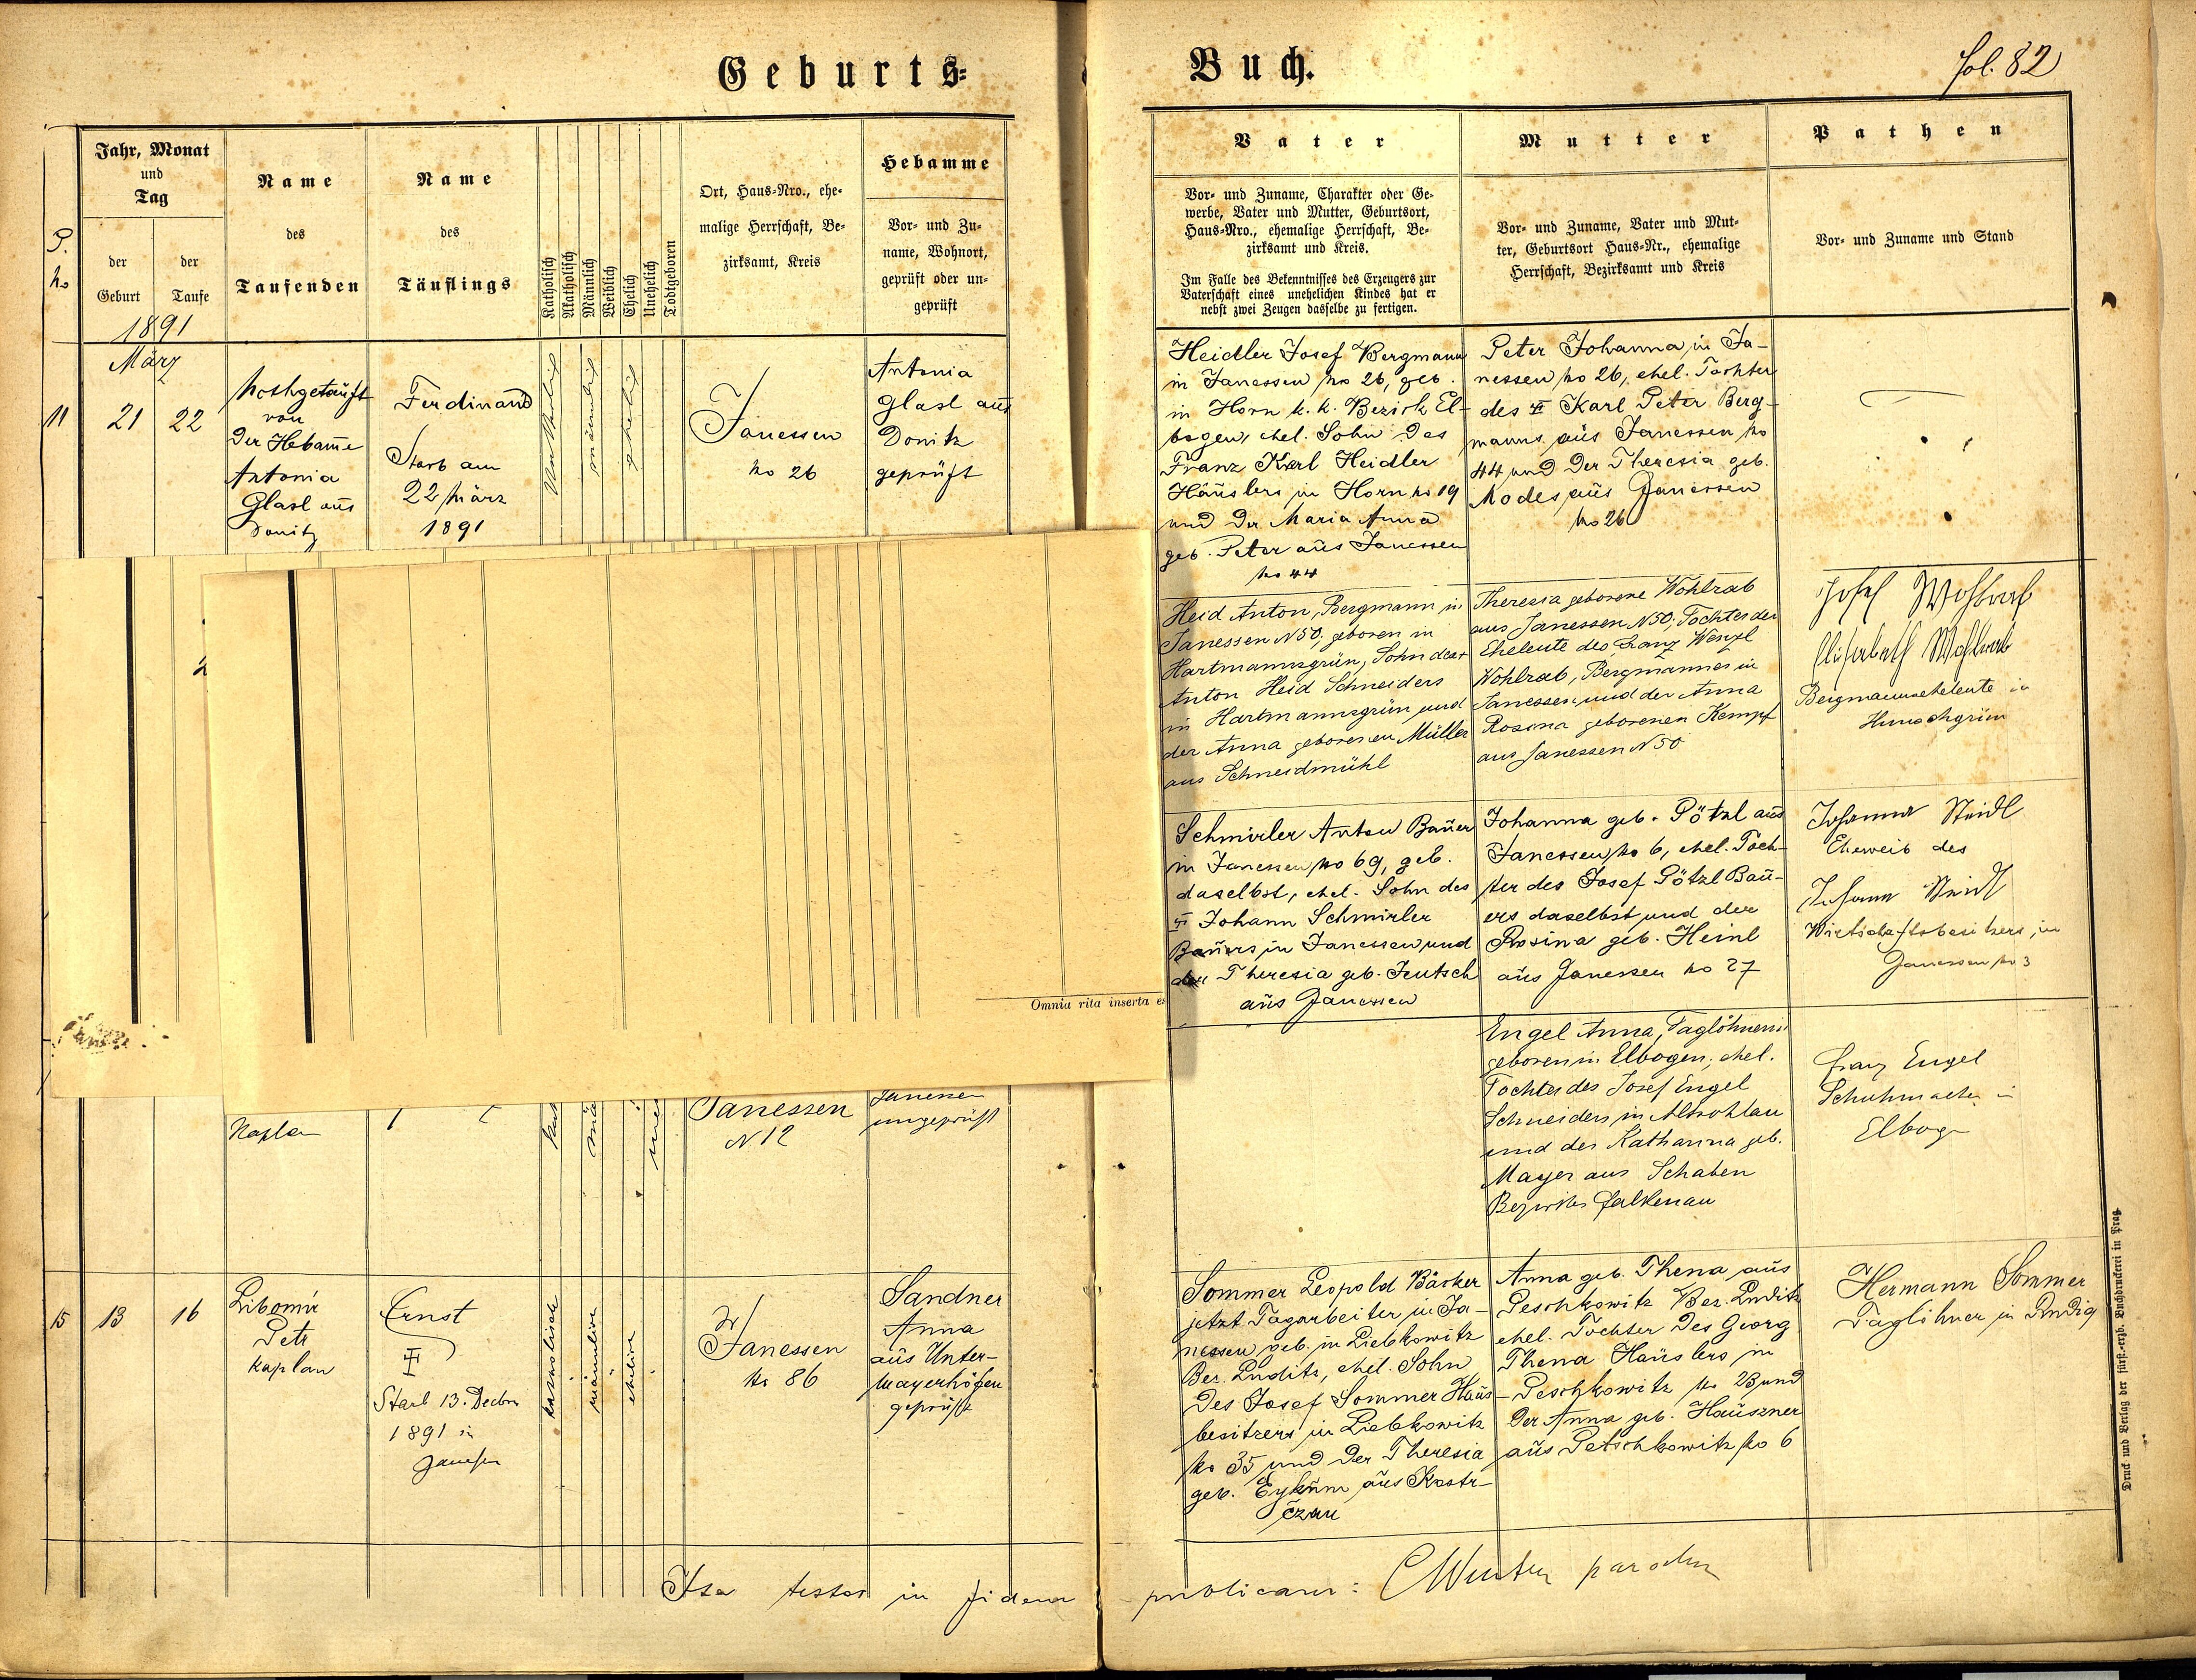 Geburts=
Buch.
fol. 82
Jahr, Monat
und
Tag
der
Geburt
der
Taufe
P.
No
1891
Name
des
Taufenden
Name
des
Täuflings
Katholisch
Akatholisch
Männlich
Weiblich
Ehelich
Unehelich
Todtgeboren
Ort, Haus=Nro., ehe=
malige Herrschaft, Be=
zirksamt, Kreis
Hebamme
Vor= und Zu=
name, Wohnort,
geprüft oder un=
geprüft
Vater
Vor= und Zuname, Charakter oder Ge=
werbe, Vater und Mutter, Geburtsort,
Haus=Nro., ehemalige Herrschaft, Be=
zirksamt und Kreis.
Im Falle des Bekenntnisses des Erzeugers zur
Vaterschaft eines unehelichen Kindes hat er
nebst zwei Zeugen dasselbe zu fertigen.
Mutter
Vor= und Zuname, Vater und Mut=
ter, Geburtsort Haus=Nr., ehemalige
Herrschaft, Bezirksamt und Kreis
Pathen
Vor= und Zuname und Stand
März
11
21
22
Nothgetauft
von
der Hebam̄e
Antonia
Glasl aus
Donitz
Ferdinand
Starb am
22 März
1891
männlich
ehelich
Janessen
No 26
Antonia
Glasl aus
Donitz
geprüft
Heidler Josef Bergmann
in Janessen No 26, geb.
in Horn k. k. Bezirk El-
bogen, ehel. Sohn des
Franz Karl Heidler
Häuslers in Horn No 19
und der Maria Anna
geb. Peter aus Janessen
No 44
Peter Johanna, in Ja-
nessen No 26, ehel. Tochter
des Karl Peter Berg-
manns aus Janessen No
44 und der Theresia geb.
Modes aus Janessen
No 26
Heid Anton, Bergmann in
Janessen N 50, geboren in
Hartmannsgrün, Sohn des
Anton Heid Schneiders
in Hartmannsgrün und
der Anna geborenen Müller
aus Schneidmühl
Theresia geborene Wohlrab
aus Janessen N 50, Tochter der
Eheleute des Franz Wenzl
Wohlrab, Bergmannes in
Janessen und der Anna
Rosina geborenen Kempf
aus Janessen N 50
Josef Wohlrab
Elisabeth Wohlrab
Bergmannseheleute in
Schmirler Anton Bauer
in Janessen No 69, geb.
daselbst, ehel. Sohn des
Johann Schmirler
Bauers in Janessen und
der Theresia geb. Jeutsch
aus Janessen
Johanna geb. Pötzl aus
Janessen No 6, ehel. Toch-
ter des Josef Pötzl Bau-
ers daselbst und der
Rosina geb. Heinl
aus Janessen No 27
Johanna Steidl
Eheweib des
Johann Steidl
Wirtschaftsbesitzers in
Janessen No 3
Omnia rita inserta es
Kaplan
Janessen
N 12
Janessen
ungeprüft
Engel Anna, Taglöhnerin
geboren in Elbogen, ehel.
Tochter des Josef Engel
Schneiders in Altrohlau
und der Katharina geb.
Mayer aus Schaben
Bezirkes Falkenau
Franz Engel
Schuhmacher in
Elbogen
15
13
16
Libomír
Petr
Kaplan
Ernst
Starb 13. Decbr
1891 in
Janessen
katholisch
männlich
ehelich
Janessen
No 86
Sandner
Anna
aus Unter-
Mayerhöfen
geprüft
Sommer Leopold Bäcker
jetzt Tagarbeiter in Ja-
nessen, geb. in Liebkowitz
Bez. Luditz, ehel. Sohn
des Josef Sommer Haus-
besitzers in Liebkowitz
No 35 und der Theresia
geb. Eykům aus Kostr-
čzan
Anna geb. Thena aus
Peschkowitz Bez. Luditz
ehel. Tochter des Georg
Thena Häuslers in
Peschkowitz No 23 und
der Anna geb. Häuszner
aus Petschkowitz No 6
Hermann Sommer
Taglöhner in Ludig
Ita testor in fidem
publicam: CWinter parochus
Druck und Verlag der fürst.=erzb. Buchdruckerei in Prag.